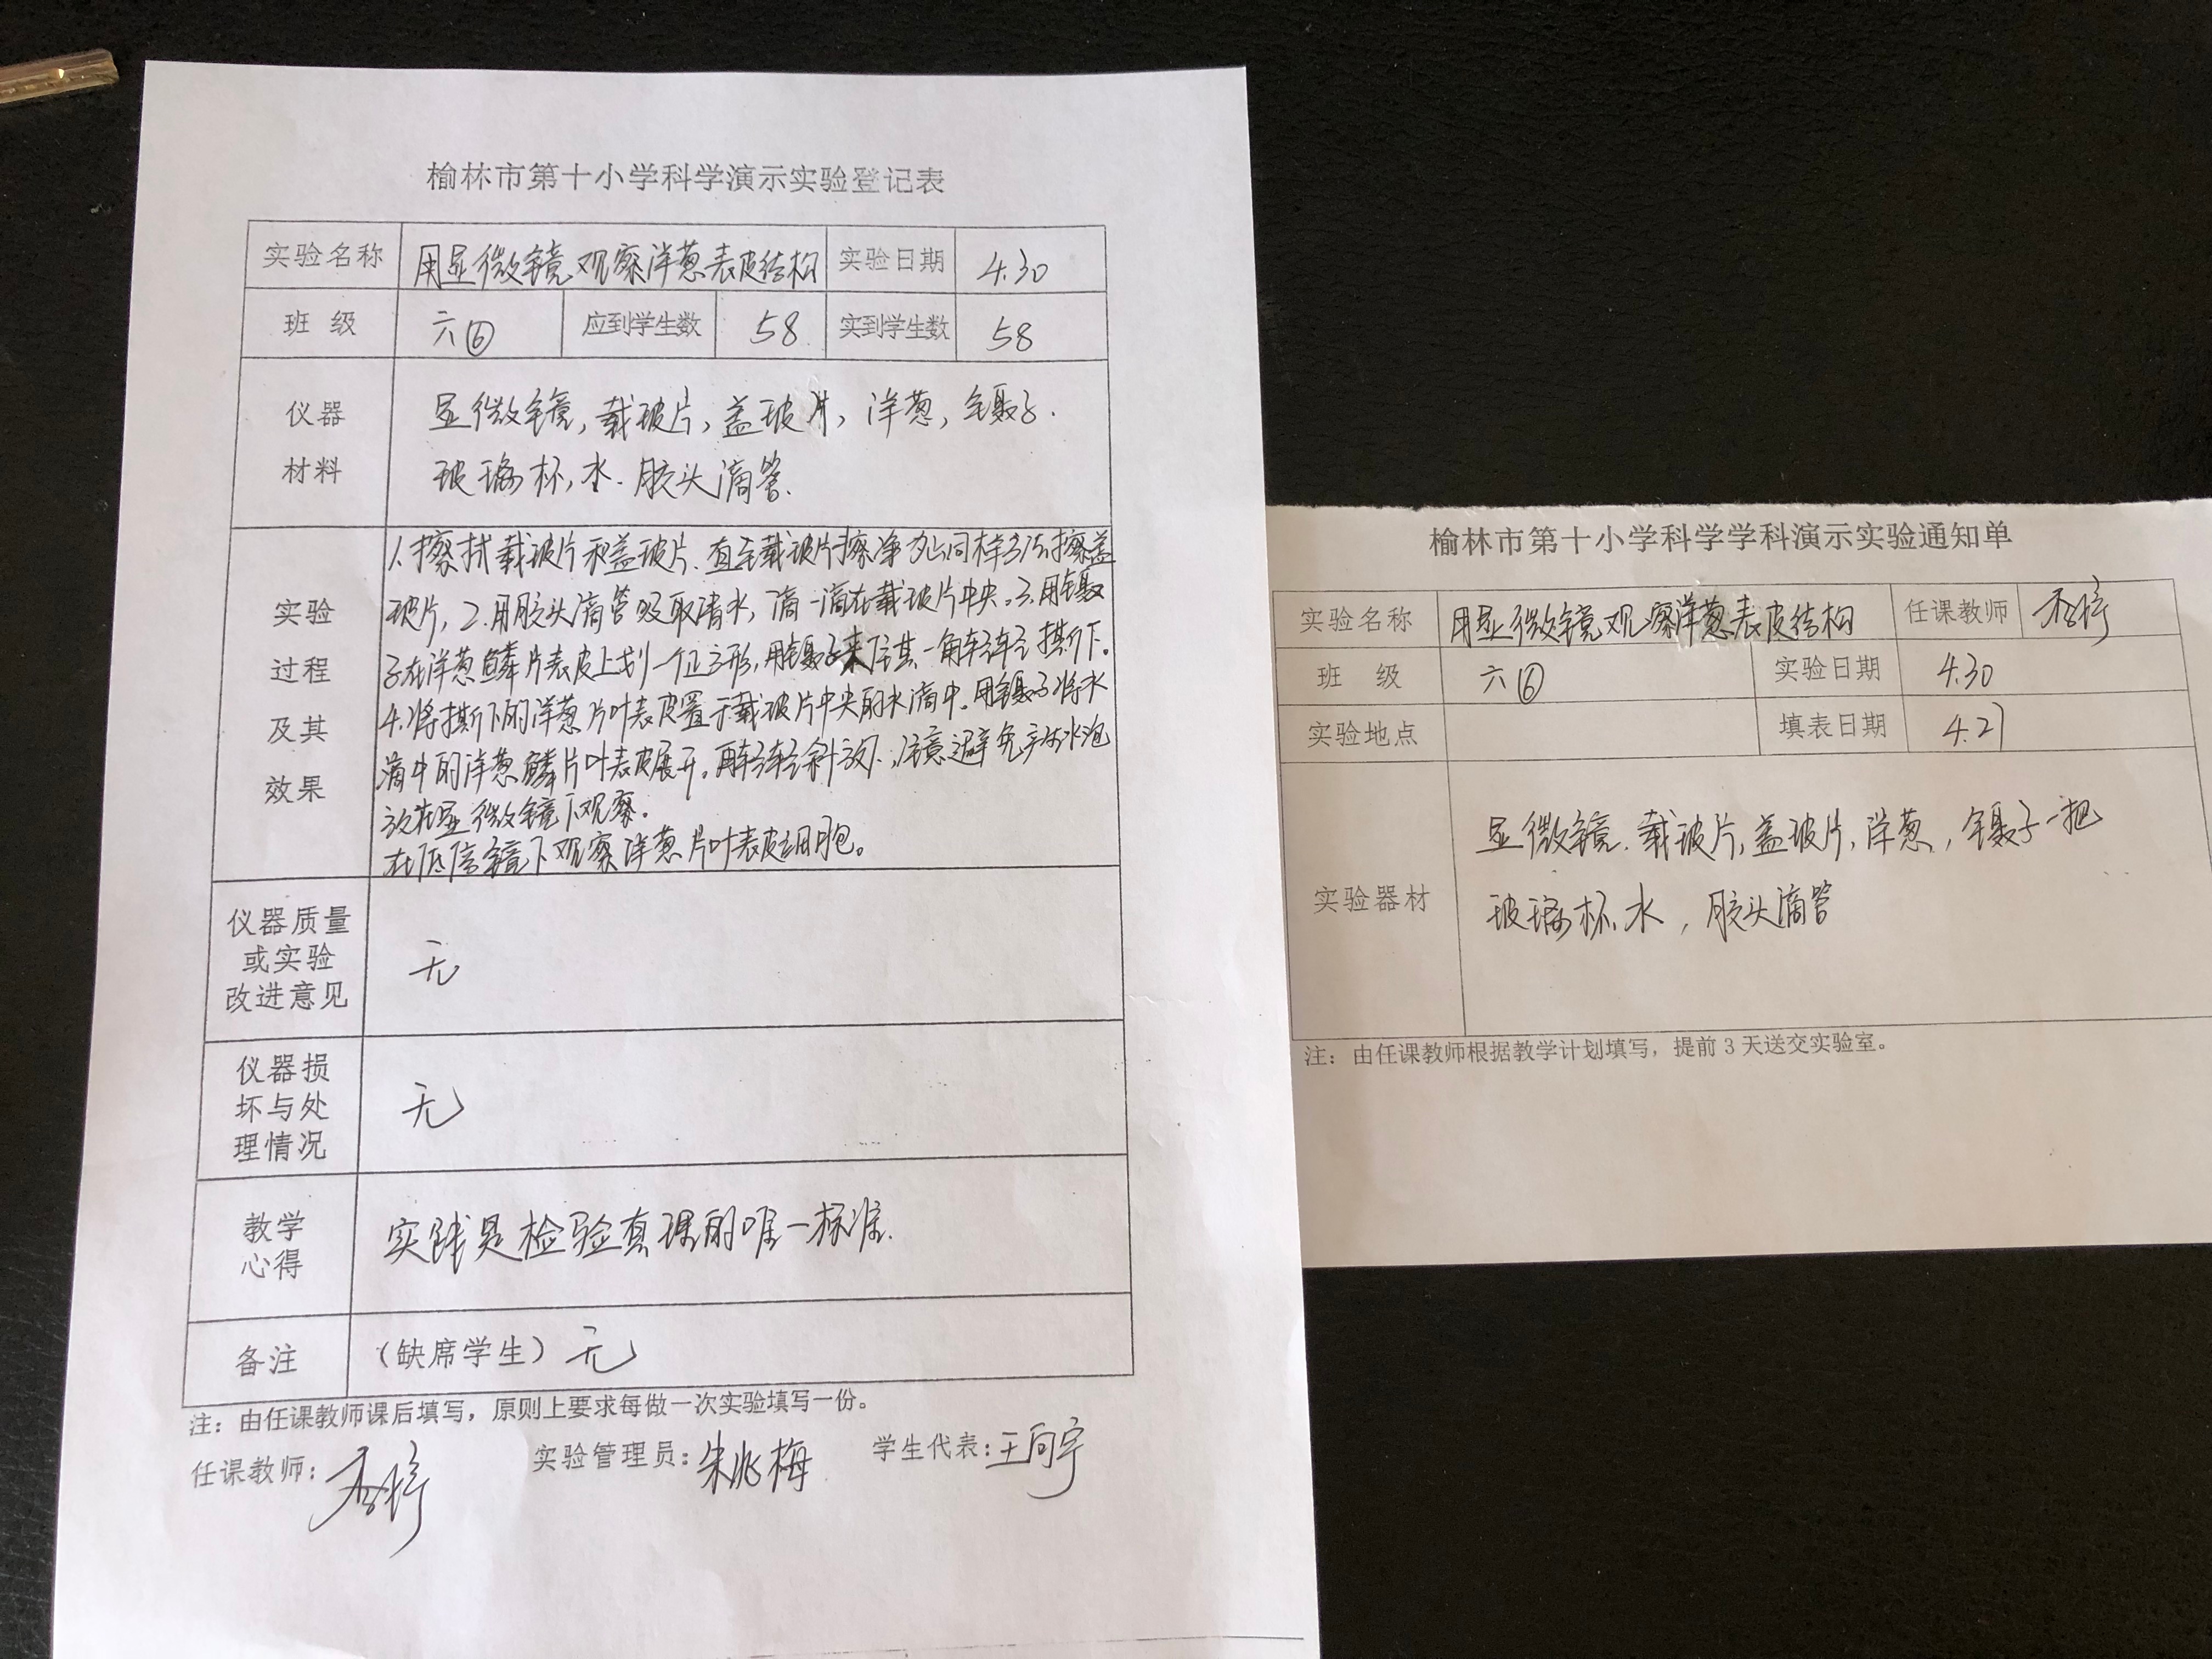 榆林市第十小学科学演示实验登记表
实验名称 用显微镜观察洋葱表皮结构 实验日期 4.30
班 级 六⑥ 应到学生数 58 实到学生数 58
仪器
材料
显微镜,载玻片,盖玻片,洋葱,镊子.
玻璃杯,水.胶头滴管.
实验
过程
及其
效果
1.擦拭载玻片和盖玻片.直至载玻片擦净为止同样方法擦盖
玻片,2.用胶头滴管吸取清水,滴一滴在载玻片中央。3.用镊
子在洋葱鳞片表皮上划一个正方形,用镊子夹住其一角轻轻撕下。
4.将撕下的洋葱片叶表皮置于载玻片中央的水滴中.用镊子将水
滴中的洋葱鳞片叶表皮展开。再轻轻斜放下,注意避免产生水泡
放在显微镜下观察.
在低倍镜下观察洋葱片叶表皮细胞。
仪器质量
或实验
改进意见
无
仪器损
坏与处
理情况
无
教学
心得
实践是检验真理的唯一标准.
备注 (缺席学生) 无
注:由任课教师课后填写,原则上要求每做一次实验填写一份。
任课教师: 实验管理员:朱兆梅 学生代表:王向宇
榆林市第十小学科学学科演示实验通知单
实验名称 用显微镜观察洋葱表皮结构 任课教师
班 级 六⑥ 实验日期 4.30
实验地点 填表日期 4.27
实验器材
显微镜.载玻片,盖玻片,洋葱,镊子一把
玻璃杯.水,胶头滴管
注:由任课教师根据教学计划填写,提前3天送交实验室。